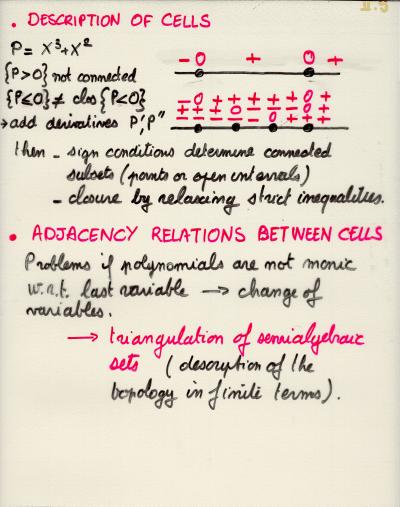 II.5
• DESCRIPTION OF CELLS
P = X³+X²
- 0 + 0 +
{P>0} not connected
{P≤0} ≠ clos {P<0}
→ add derivatives P', P"
then - sign conditions determine connected
subsets (points or open intervals)
- closure by relaxing strict inequalities.
• ADJACENCY RELATIONS BETWEEN CELLS
Problems if polynomials are not monic
w.r.t. last variable → change of
variables.
→ triangulation of semialgebraic
sets (description of the
topology in finite terms).